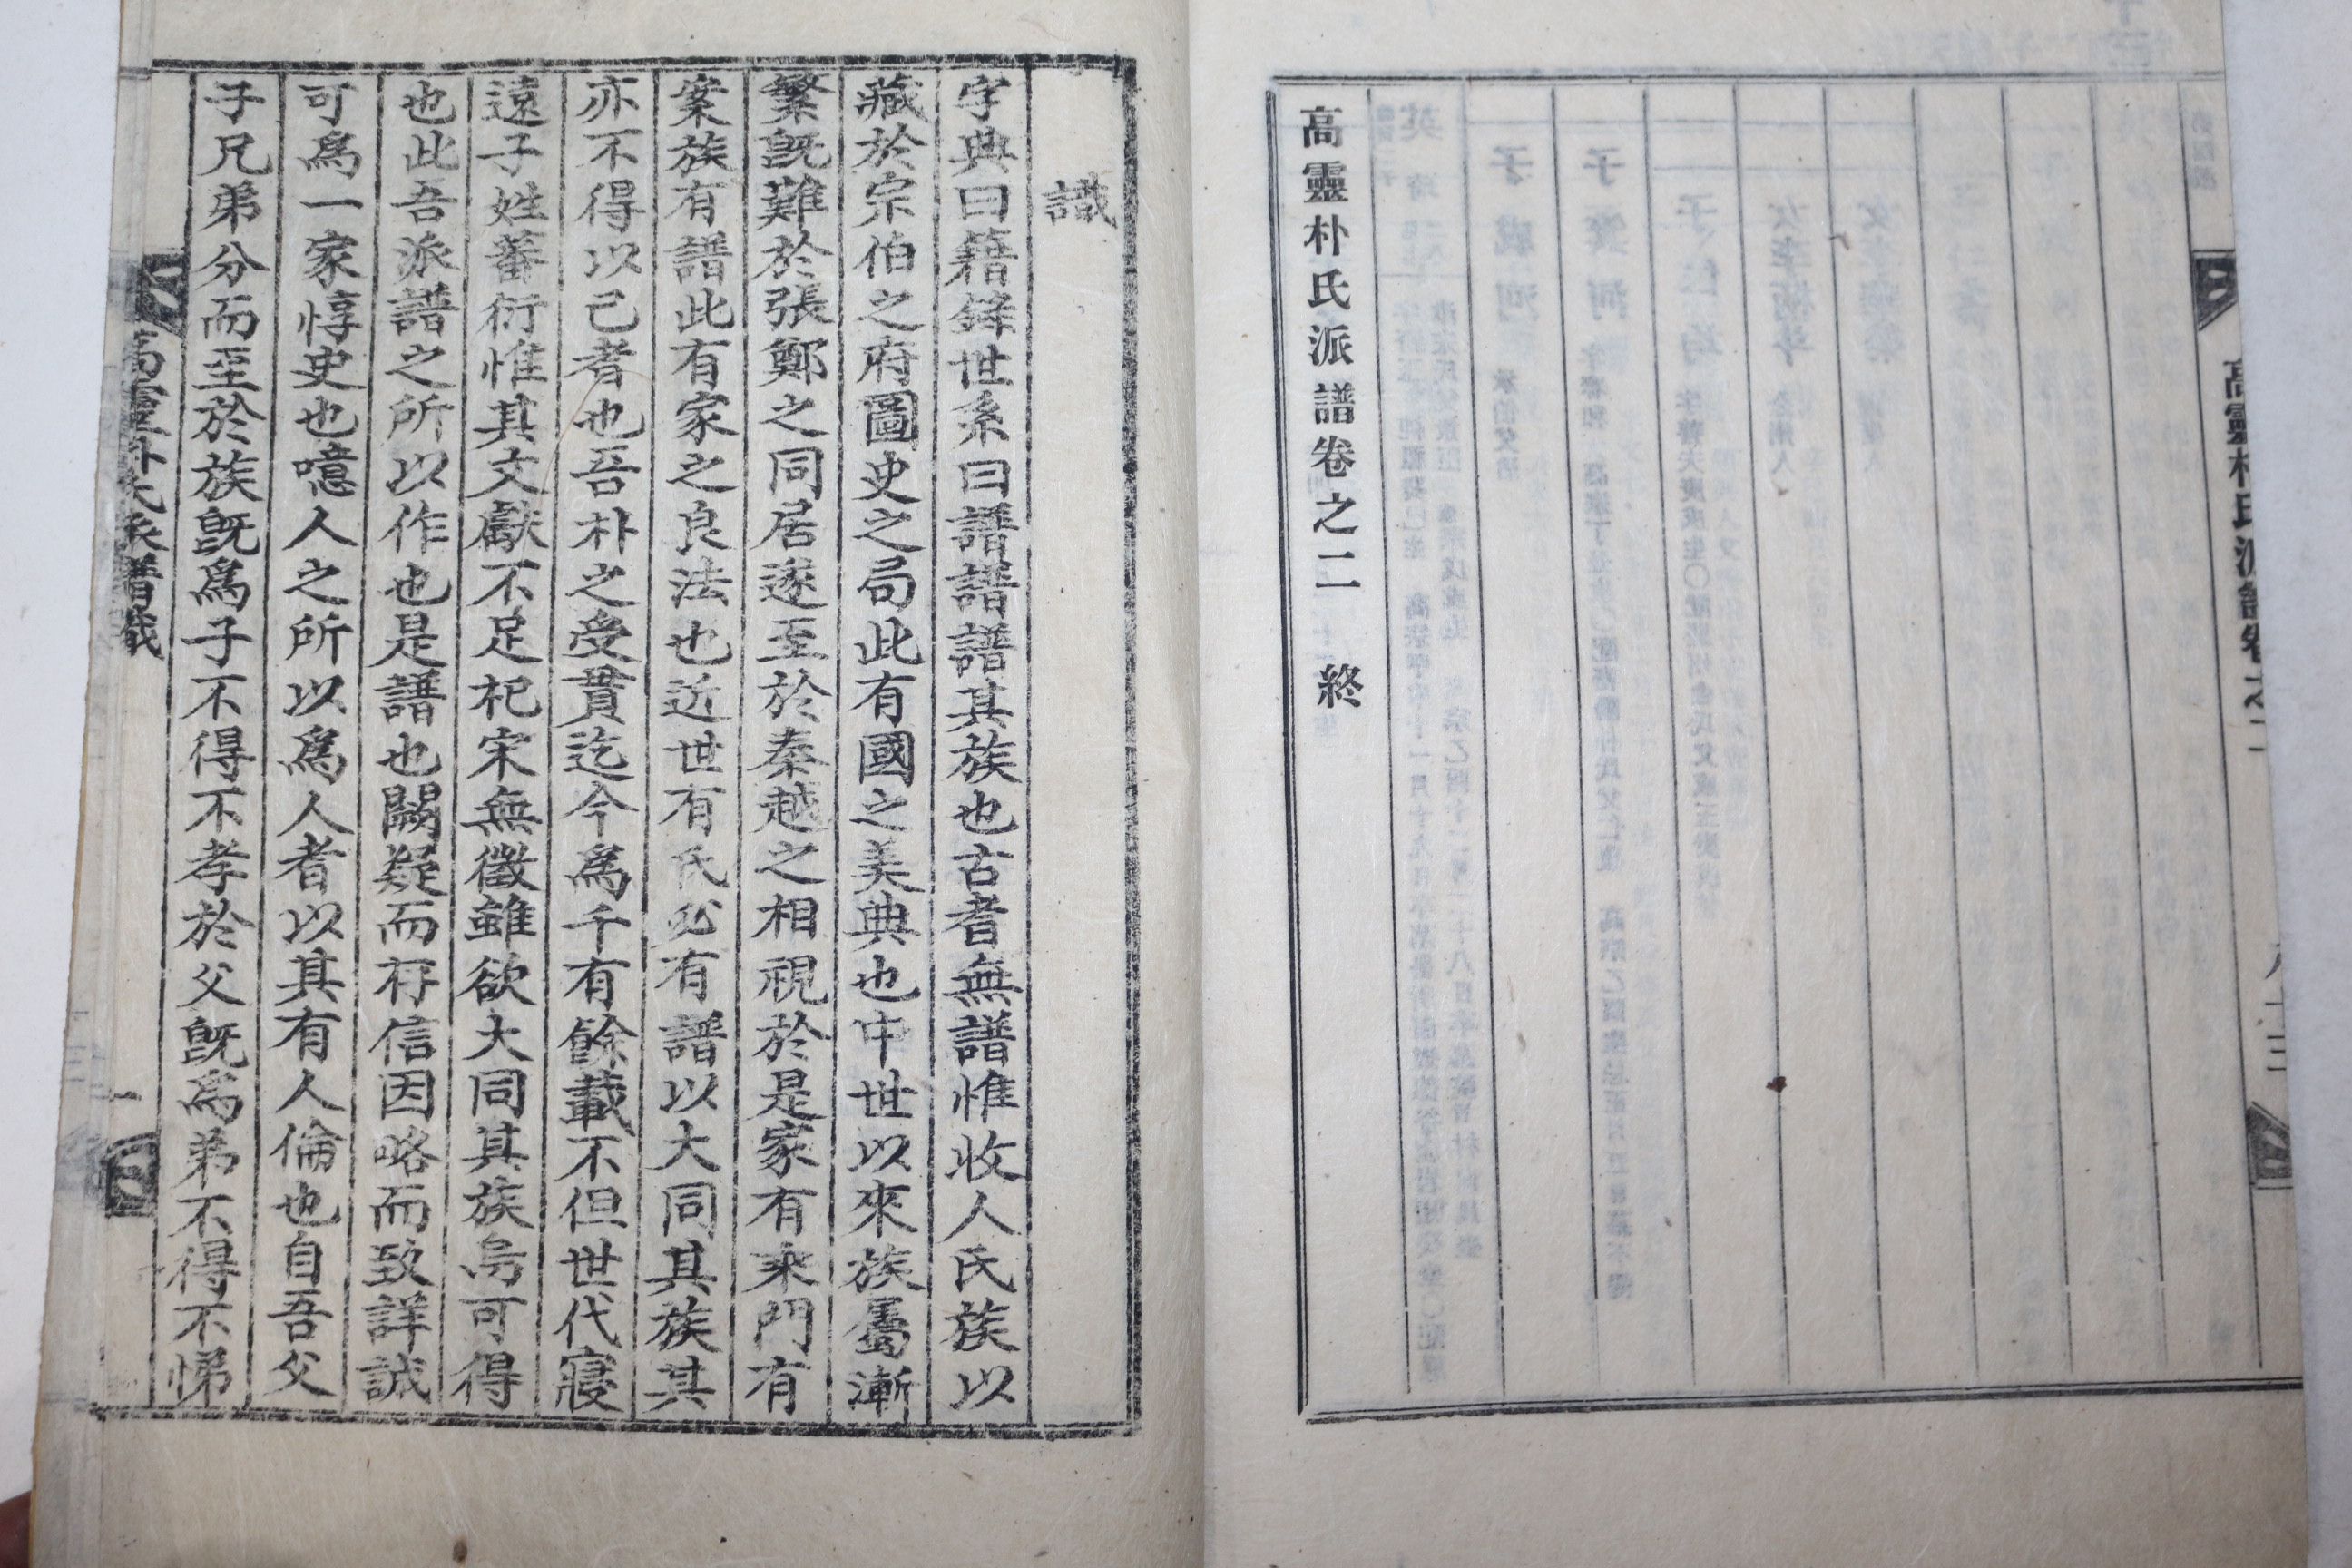 高靈朴氏派譜卷之二 終
高靈朴氏派譜卷之二
識
字典曰籍錄世系曰譜譜譜其族也古者無譜惟收人氏族以
藏於宗伯之府圖史之局此有國之美典也中世以來族屬漸
繁旣難於張鄭之同居遂至於秦越之相視於是家有乘門有
案族有譜此有家之良法也近世有氏必有譜以大同其族其
亦不得以已者也吾朴之受貫迄今爲千有餘載不但世代寢
遠子姓蕃衍惟其文獻不足杞宋無徵雖欲大同其族烏可得
也此吾派譜之所以作也是譜也闕疑而存信因略而致詳誠
可爲一家惇史也噫人之所以爲人者以其有人倫也自吾父
子兄弟分而至於族旣爲子不得不孝於父旣爲弟不得不悌
高靈朴氏派譜識
一